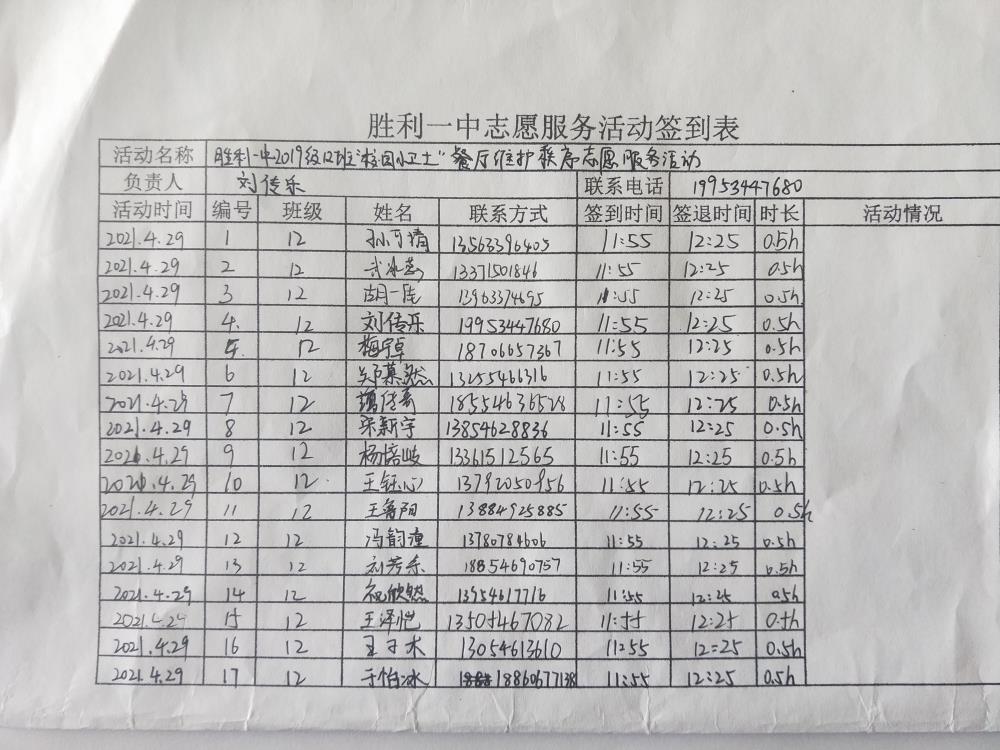 胜利一中志愿服务活动签到表
活动名称 胜利一中2019级12班"校园小卫士"餐厅维护秩序志愿服务活动
负责人 刘传乐 联系电话 19953447680
活动时间 编号 班级 姓名 联系方式 签到时间 签退时间 时长 活动情况
2021.4.29 1 12 孙可晴 13563396405 11:55 12:25 0.5h
2021.4.29 2 12 13371501846 11:55 12:25 0.5h
2021.4.29 3 12 胡一佳 13963374695 11:55 12:25 0.5h
2021.4.29 4 12 刘传乐 19953447680 11:55 12:25 0.5h
2021.4.29 5 12 梅宇卓 18706657367 11:55 12:25 0.5h
2021.4.29 6 12 郑慕然 13255466316 11:55 12:25 0.5h
2021.4.29 7 12 18554636528 11:55 12:25 0.5h
2021.4.29 8 12 宋新宇 13854628836 11:55 12:25 0.5h
2021.4.29 9 12 杨培岐 13361512565 11:55 12:25 0.5h
2021.4.29 10 12 王钰心 13792050956 11:55 12:25 0.5h
2021.4.29 11 12 王鲁阳 13884925885 11:55 12:25 0.5h
2021.4.29 12 12 冯韵潼 13780784606 11:55 12:25 0.5h
2021.4.29 13 12 18854690757 11:55 12:25 0.5h
2021.4.29 14 12 祝欣然 13954617716 11:55 12:25 0.5h
2021.4.29 15 12 王泽恺 13505467082 11:55 12:25 0.5h
2021.4.29 16 12 王子木 13054613610 11:55 12:25 0.5h
2021.4.29 17 12 于怡冰 18860677138 11:55 12:25 0.5h